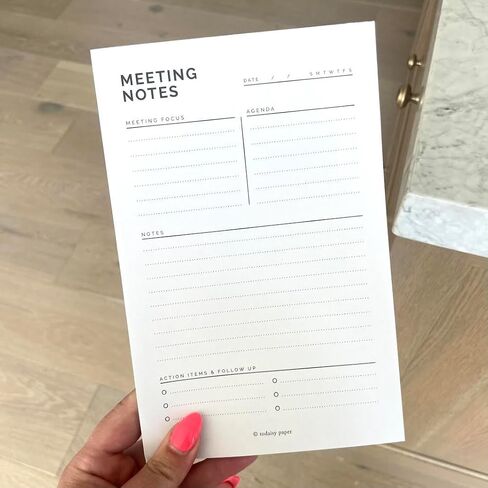 MEETING
NOTES
DATE / / S M T W T F S
MEETING FOCUS
AGENDA
NOTES
ACTION ITEMS & FOLLOW UP
© todaisy paper